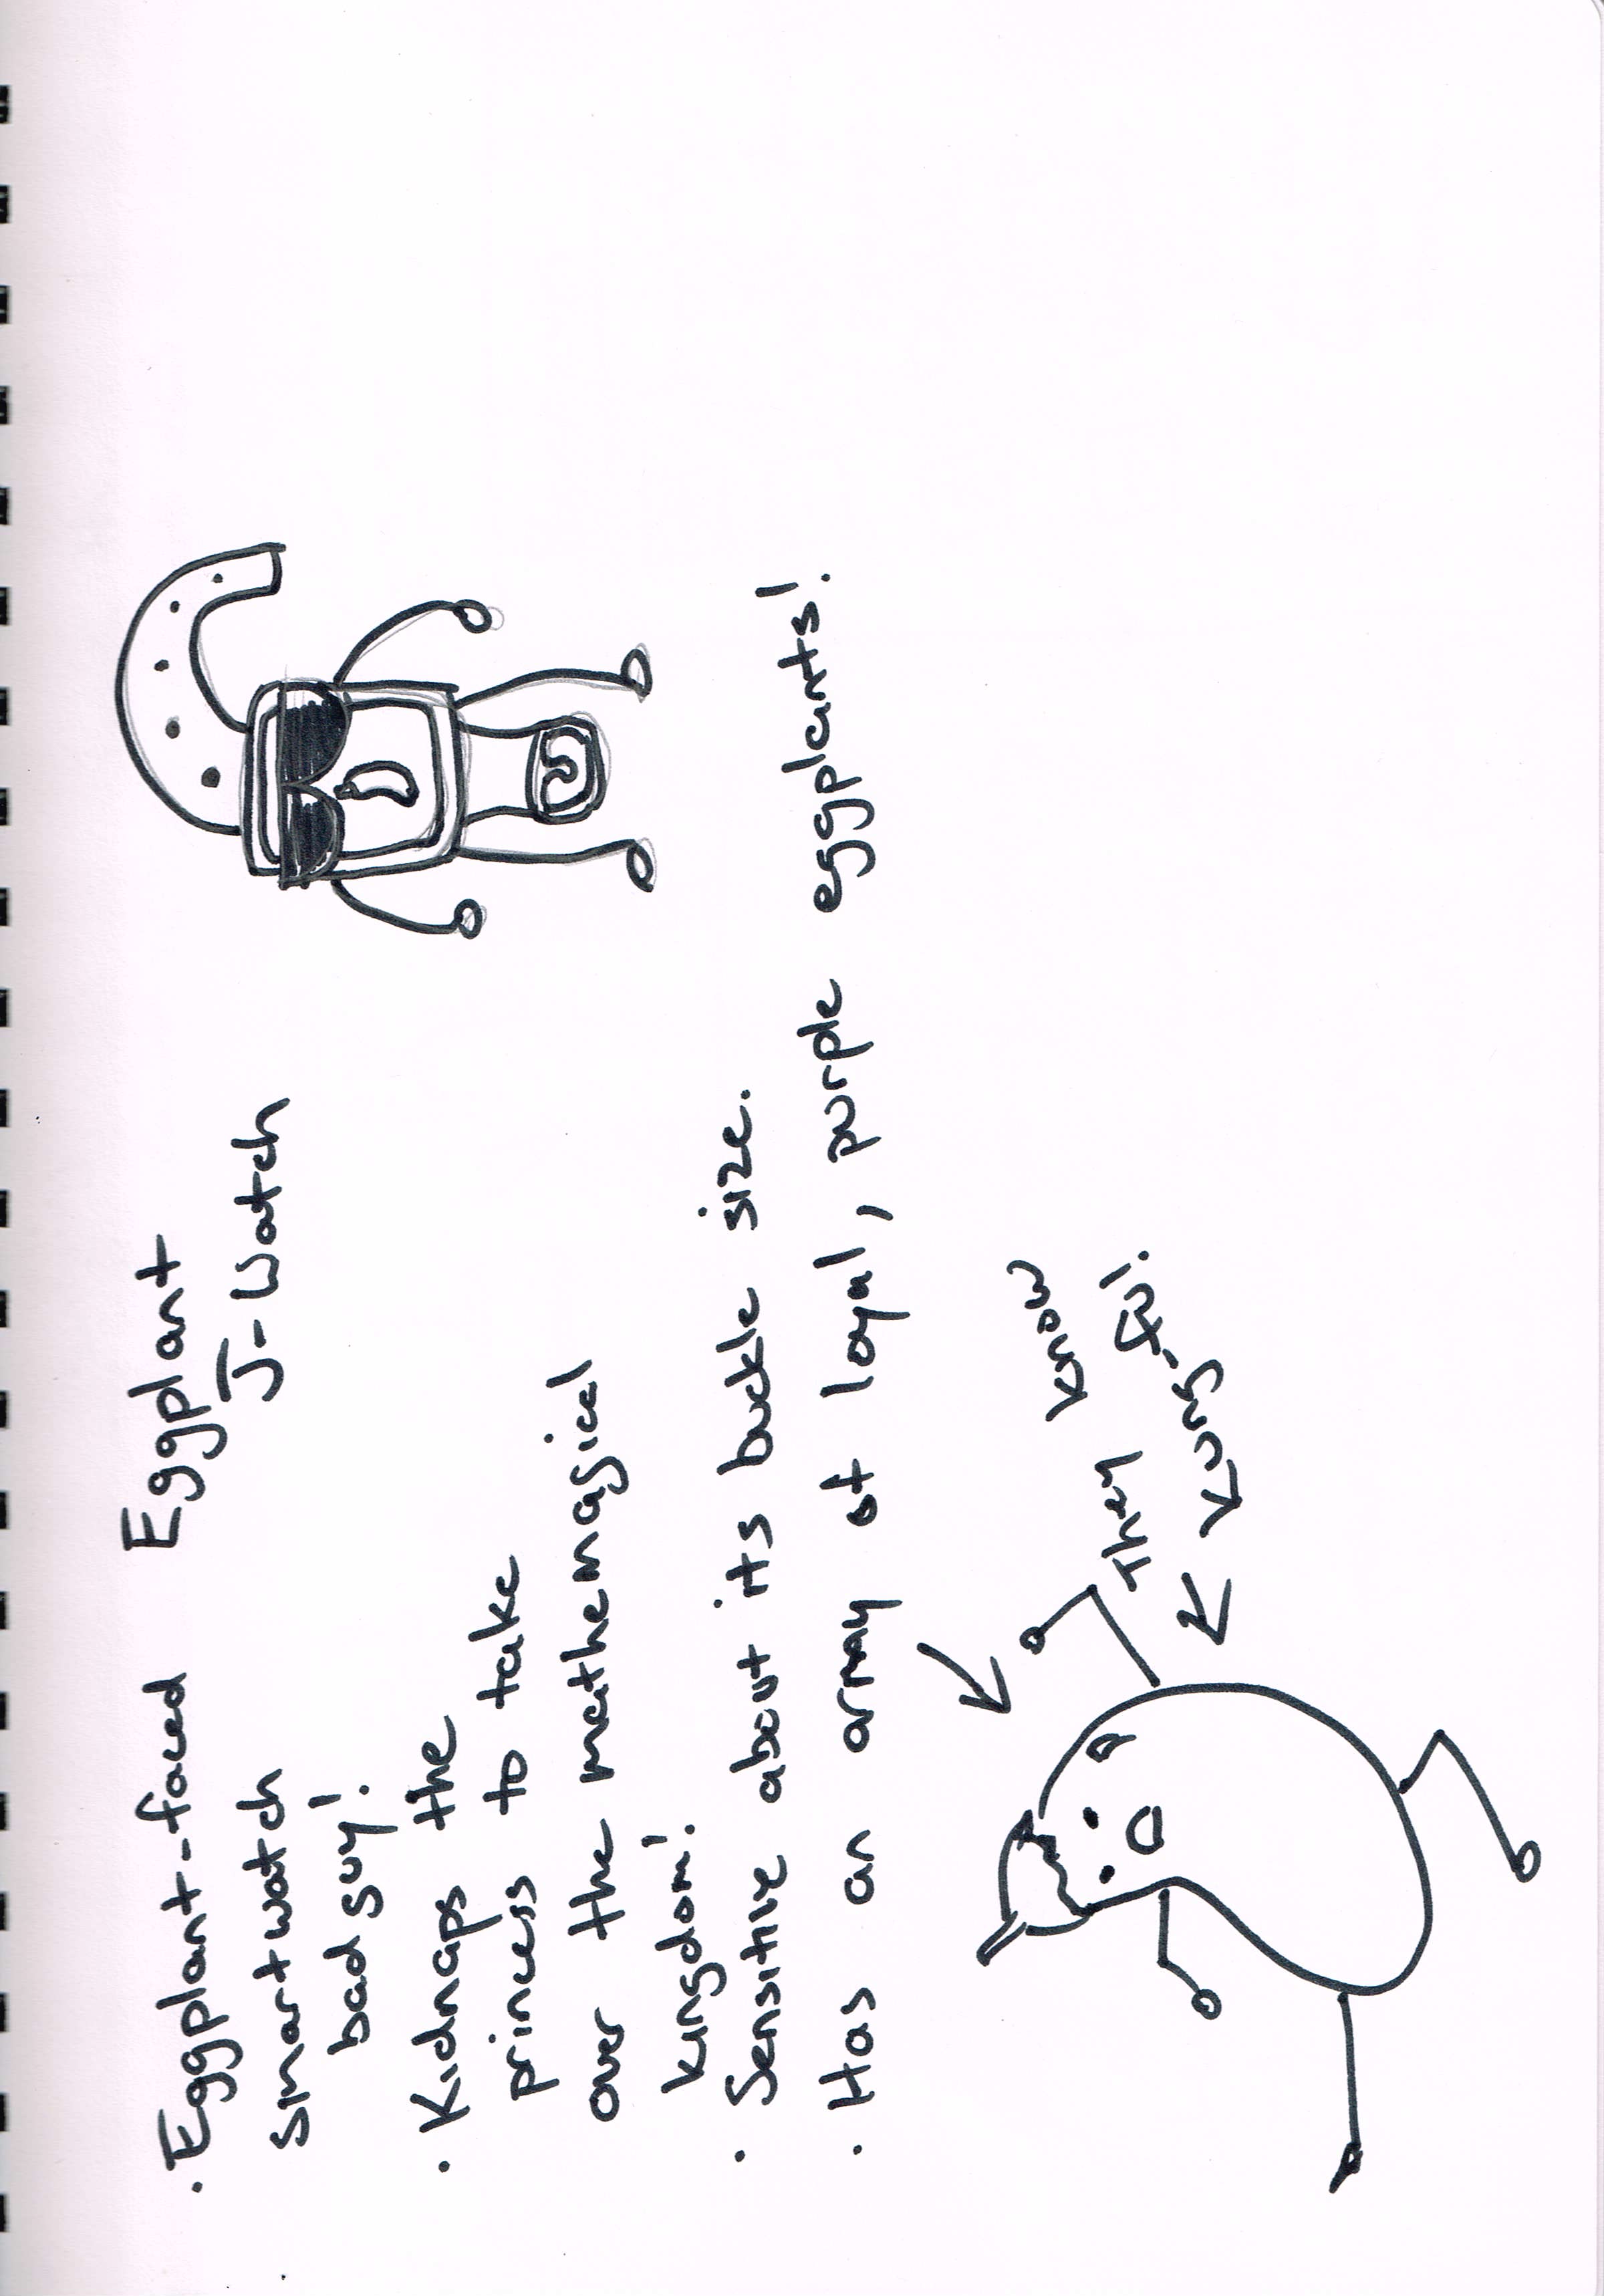 Eggplant
J-Watch
· Eggplant-faced
smartwatch
bad guy!
· Kidnaps the
princess to take
over the mathemagical
kingdom!
· Sensitive about its buckle size.
· Has an array of loyal, purple eggplants!
They know
Kung-fu!